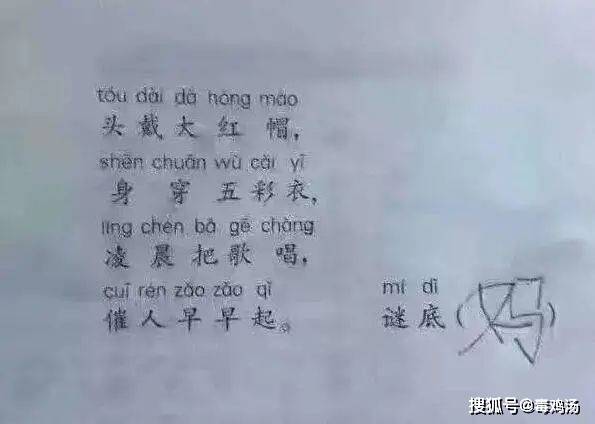 tóu dài dà hóng mào
头戴大红帽，
shēn chuān wǔ cǎi yī
身穿五彩衣，
líng chén bǎ gē chàng
凌晨把歌唱，
cuī rén zǎo zǎo qǐ mí dǐ
催人早早起。 谜底（妈）
搜狐号@毒鸡汤